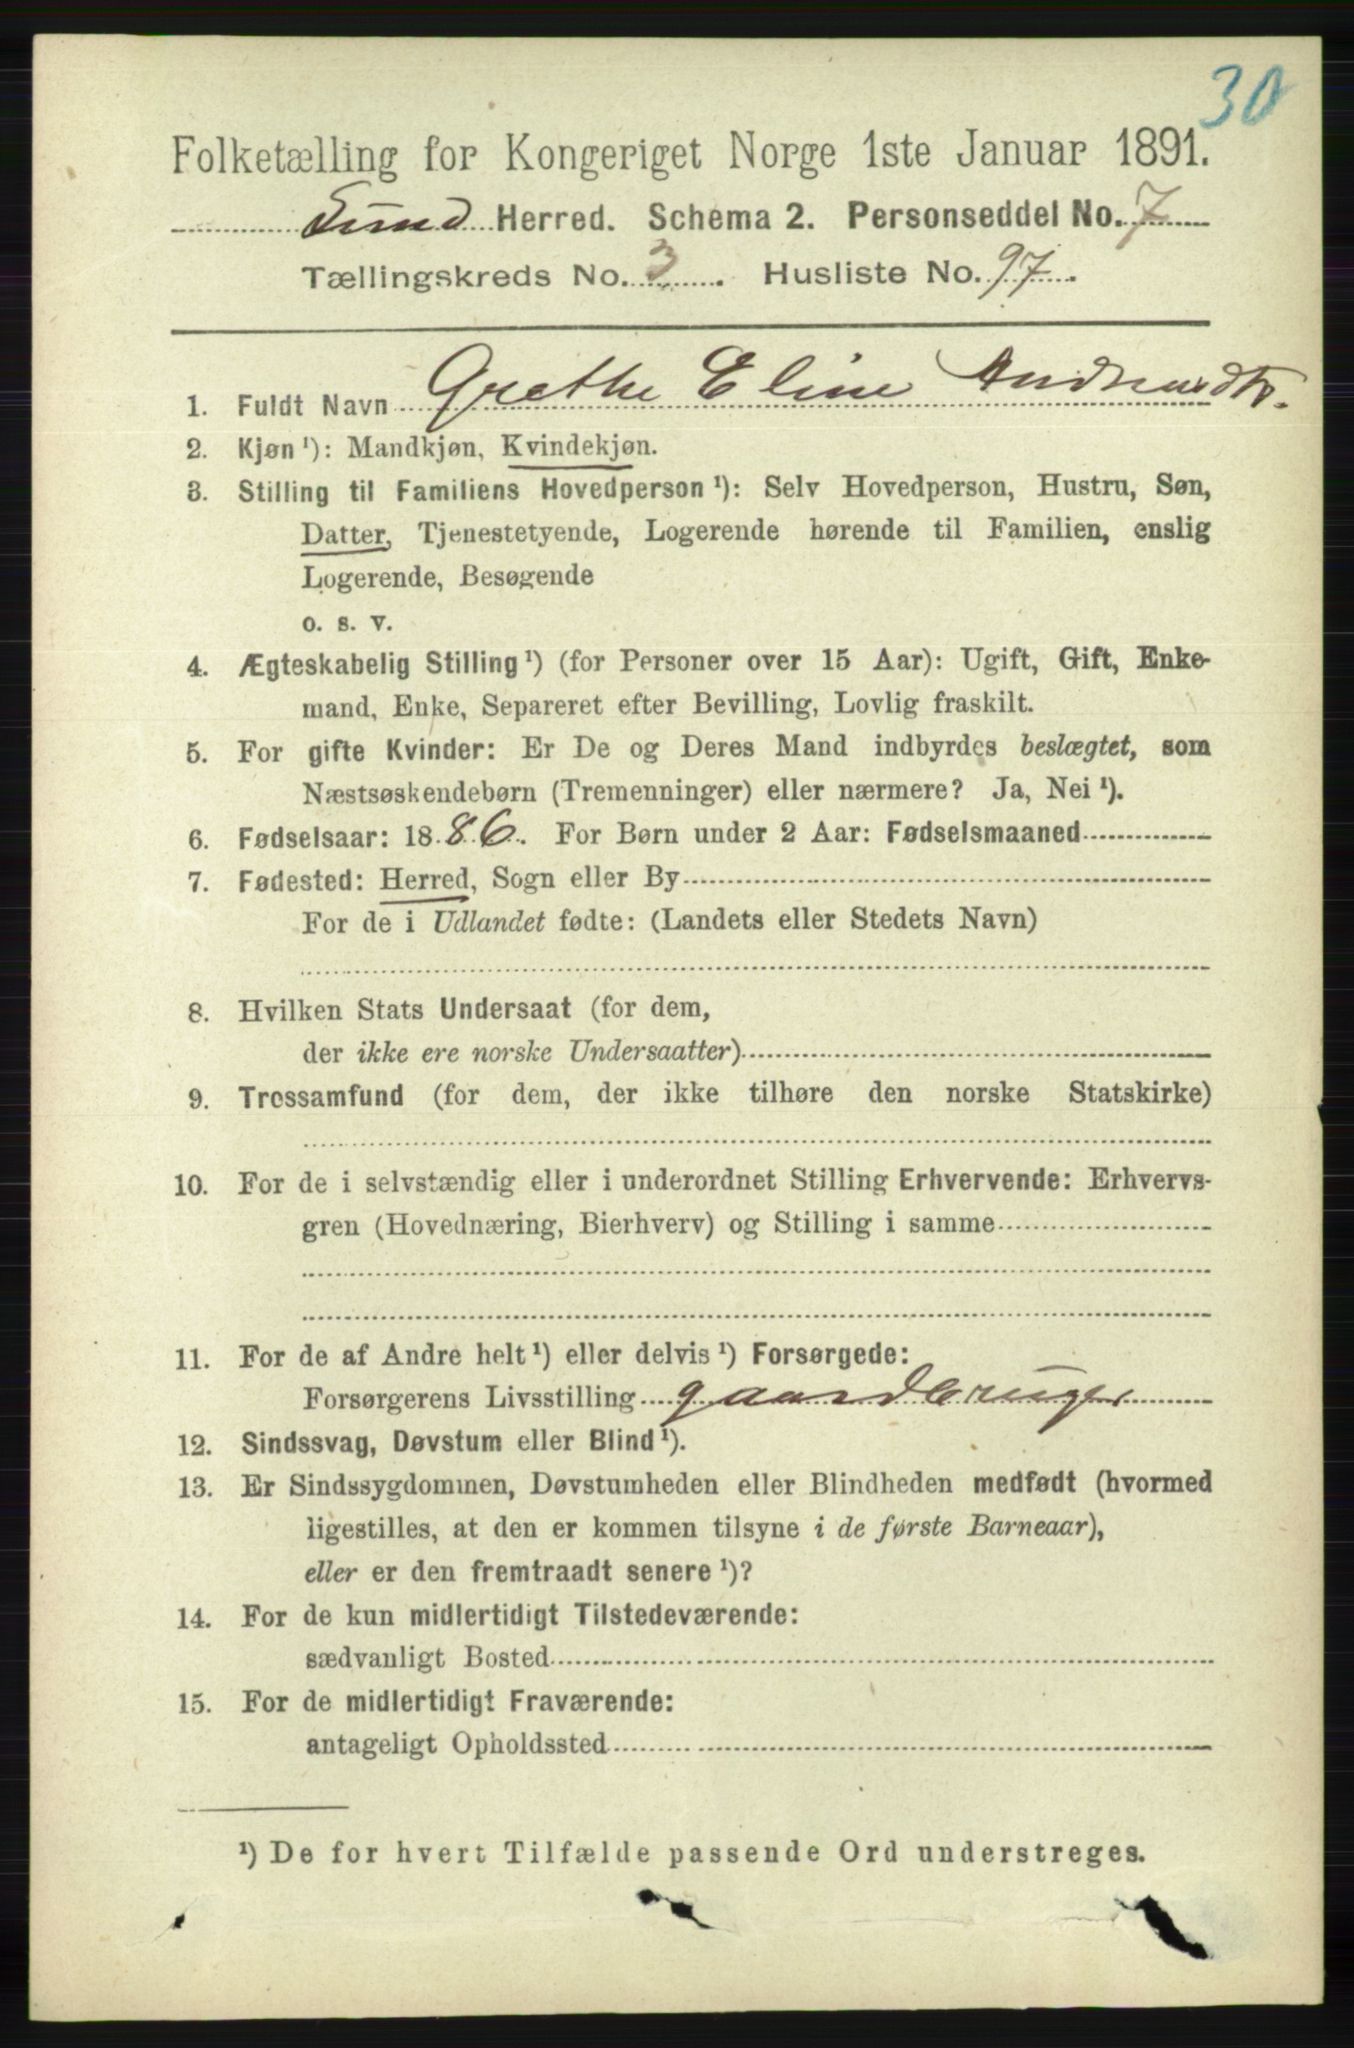 30
Folketælling for Kongeriget Norge 1ste Januar 1891.
Sund Herred. Schema 2. Personseddel No. 7
Tællingskreds No. 3. Husliste No. 97.
1. Fuldt Navn Grethe Eline
2. Kjøn ¹): Mandkjøn, Kvindekjøn.
3. Stilling til Familiens Hovedperson ¹): Selv Hovedperson, Hustru, Søn,
Datter, Tjenestetyende, Logerende hørende til Familien, enslig
Logerende, Besøgende
o. s. v.
4. Ægteskabelig Stilling ¹) (for Personer over 15 Aar): Ugift, Gift, Enke-
mand, Enke, Separeret efter Bevilling, Lovlig fraskilt.
5. For gifte Kvinder: Er De og Deres Mand indbyrdes beslægtet, som
Næstsøskendebørn (Tremenninger) eller nærmere? Ja, Nei ¹).
6. Fødselsaar: 1886. For Børn under 2 Aar: Fødselsmaaned
7. Fødested: Herred, Sogn eller By
For de i Udlandet fødte: (Landets eller Stedets Navn)
8. Hvilken Stats Undersaat (for dem,
der ikke ere norske Undersaatter)
9. Trossamfund (for dem, der ikke tilhøre den norske Statskirke)
10. For de i selvstændig eller i underordnet Stilling Erhvervende: Erhvervs-
gren (Hovednæring, Bierhverv) og Stilling i samme
11. For de af Andre helt ¹) eller delvis ¹) Forsørgede:
Forsørgerens Livsstilling gaardbruger
12. Sindssvag, Døvstum eller Blind ¹).
13. Er Sindssygdommen, Døvstumheden eller Blindheden medfødt (hvormed
ligestilles, at den er kommen tilsyne i de første Barneaar),
eller er den fremtraadt senere ¹)?
14. For de kun midlertidigt Tilstedeværende:
sædvanligt Bosted
15. For de midlertidigt Fraværende:
antageligt Opholdssted
¹) De for hvert Tilfælde passende Ord understreges.